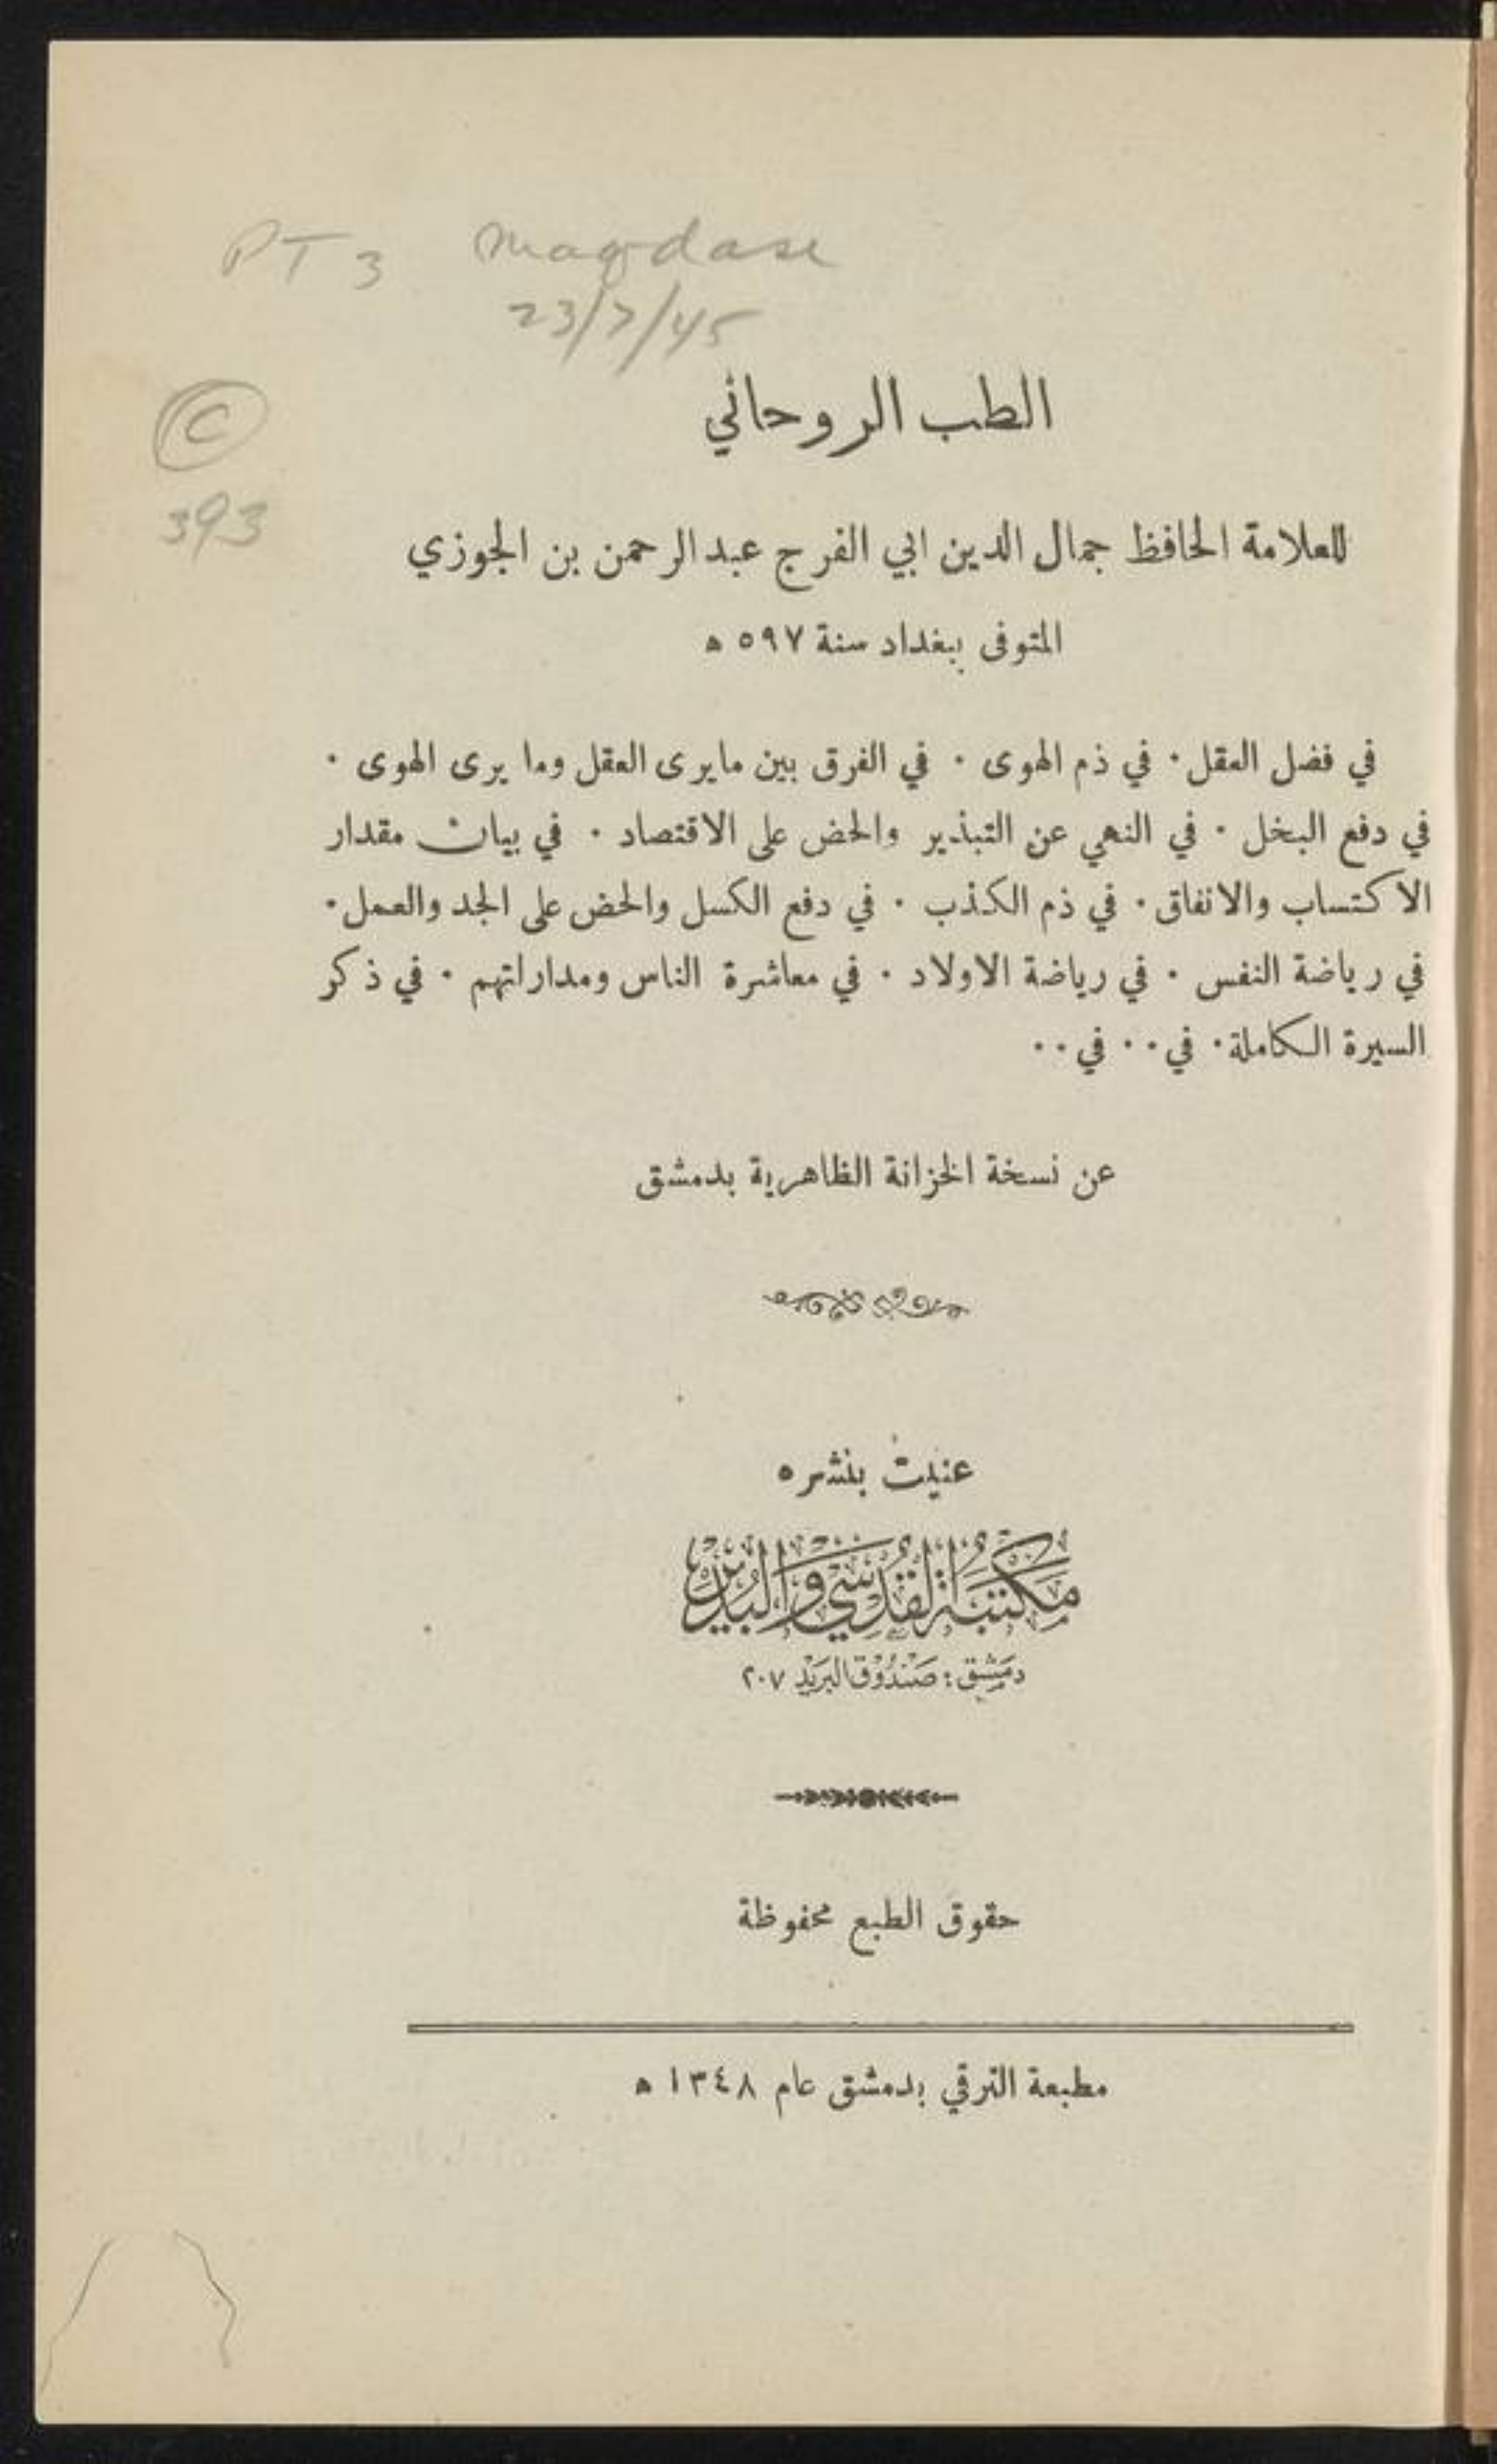 PT 3 Maqdase
23/7/45
C
393
الطب الروحاني
للعلامة الحافظ جمال الدين ابي الفرج عبد الرحمن بن الجوزي
المتوفى ببغداد سنة ٥٩٧ ه
في فضل العقل · في ذم الهوى · في الفرق بين مايرى العقل وما يرى الهوى ·
في دفع البخل · في النهي عن التبذير والحض على الاقتصاد · في بيان مقدار
الاكتساب والانفاق · في ذم الكذب · في دفع الكسل والحض على الجد والعمل ·
في رياضة النفس · في رياضة الاولاد · في معاشرة الناس ومداراتهم · في ذكر
السيرة الكاملة · في · · في · ·
عن نسخة الخزانة الظاهرية بدمشق
عنيت بنشره
مَكتَبَة القُدسِي وَالبُدَير
دمَشِق : صَندُوق البَرَيْد ٢٠٧
حقوق الطبع محفوظة
مطبعة الترقي بدمشق عام ١٣٤٨ ه